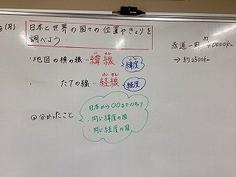 (月)
日本と世界の国々の位置やきょりを
調べよう
地図の横の線―緯線 緯度
たての線―経線 経度
◎分かったこと
日本から〇〇までのきょり
・同じ緯度の国
・同じ経度の国
赤道一周